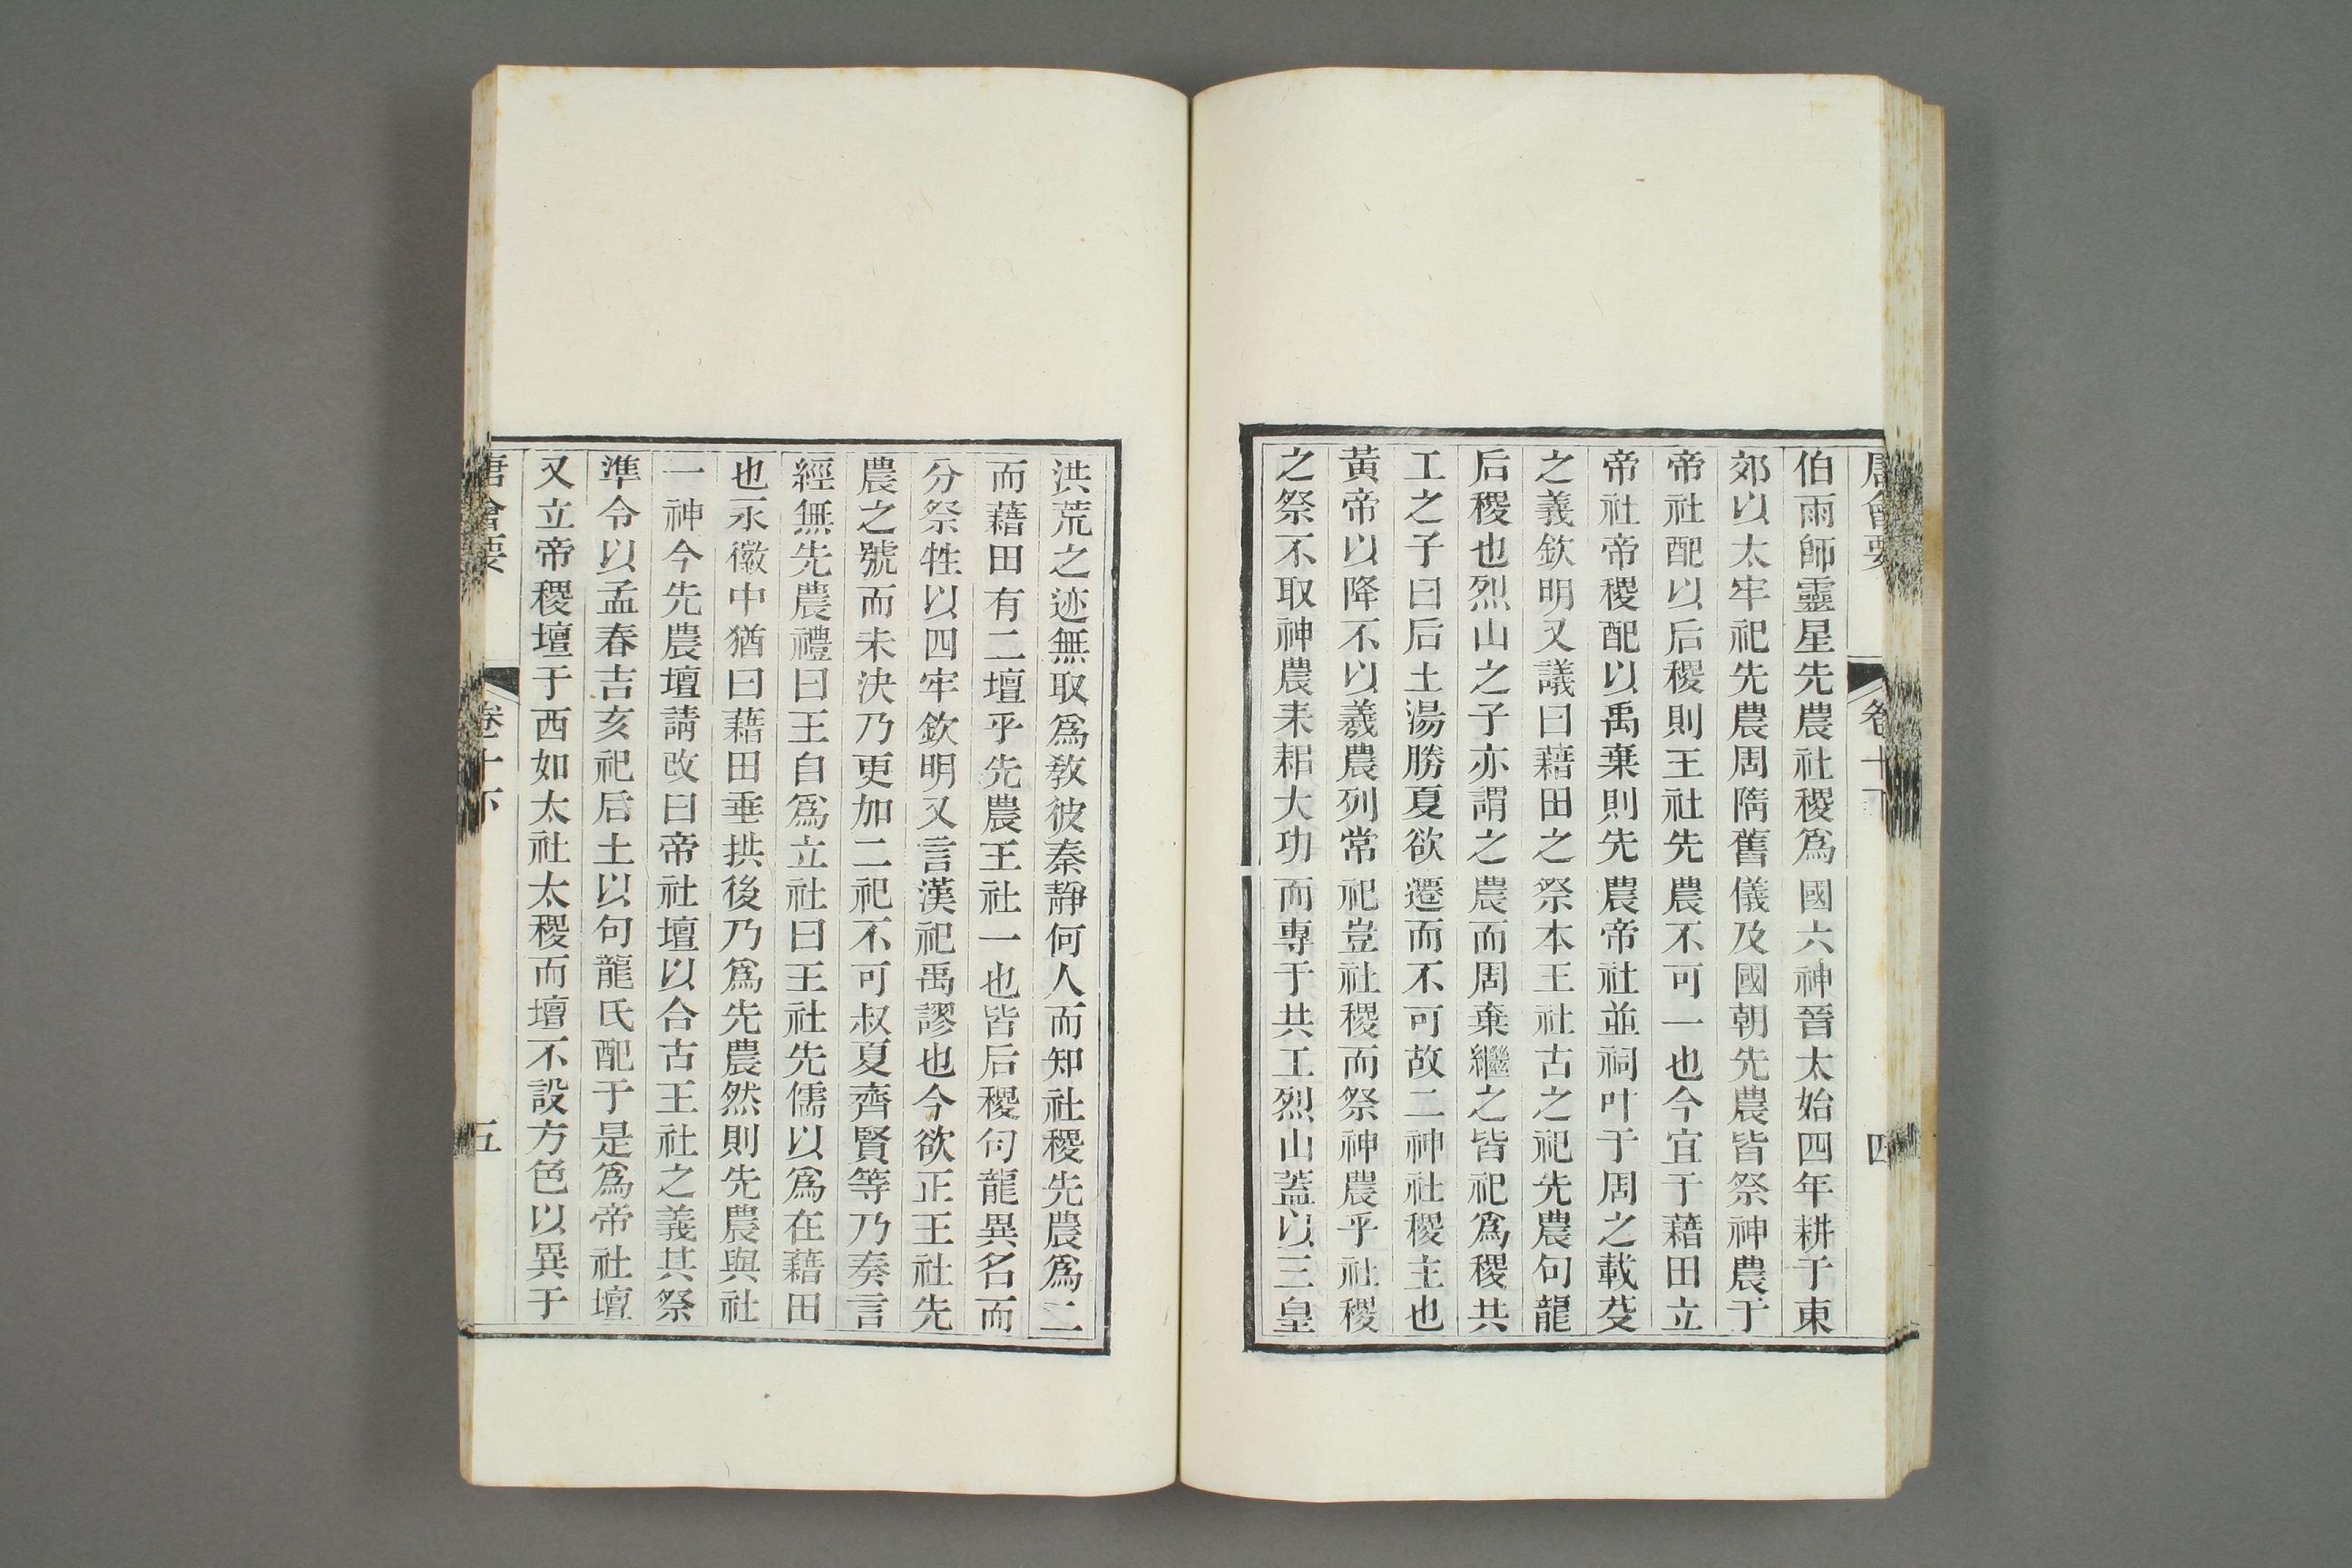 唐會要 卷十下 四
伯雨師靈星先農社稷爲國六神晉太始四年耕于東
郊以太牢祀先農周隋舊儀及國朝先農皆祭神農于
帝社配以后稷則王社先農不可一也今宜于藉田立
帝社帝稷配以禹棄則先農帝社並祠叶于周之載芟
之義欽明又議曰藉田之祭本王社古之祀先農句龍
后稷也烈山之子亦謂之農而周棄繼之皆祀爲稷共
工之子曰后土湯勝夏欲遷而不可故二神社稷主也
黃帝以降不以羲農列常祀豈社稷而祭神農乎社稷
之祭不取神農耒耜大功而專于共工烈山蓋以三皇
洪荒之迹無取爲敎彼秦靜何人而知社稷先農爲二
而藉田有二壇乎先農王社一也皆后稷句龍異名而
分祭牲以四牢欽明又言漢祀禹謬也今欲正王社先
農之號而未決乃更加二祀不可叔夏齊賢等乃奏言
經無先農禮曰王自爲立社曰王社先儒以爲在藉田
也永徽中猶曰藉田垂拱後乃爲先農然則先農與社
一神今先農壇請改曰帝社壇以合古王社之義其祭
準令以孟春吉亥祀后土以句龍氏配于是爲帝社壇
又立帝稷壇于西如太社太稷而壇不設方色以異于
唐會要 卷十下 五